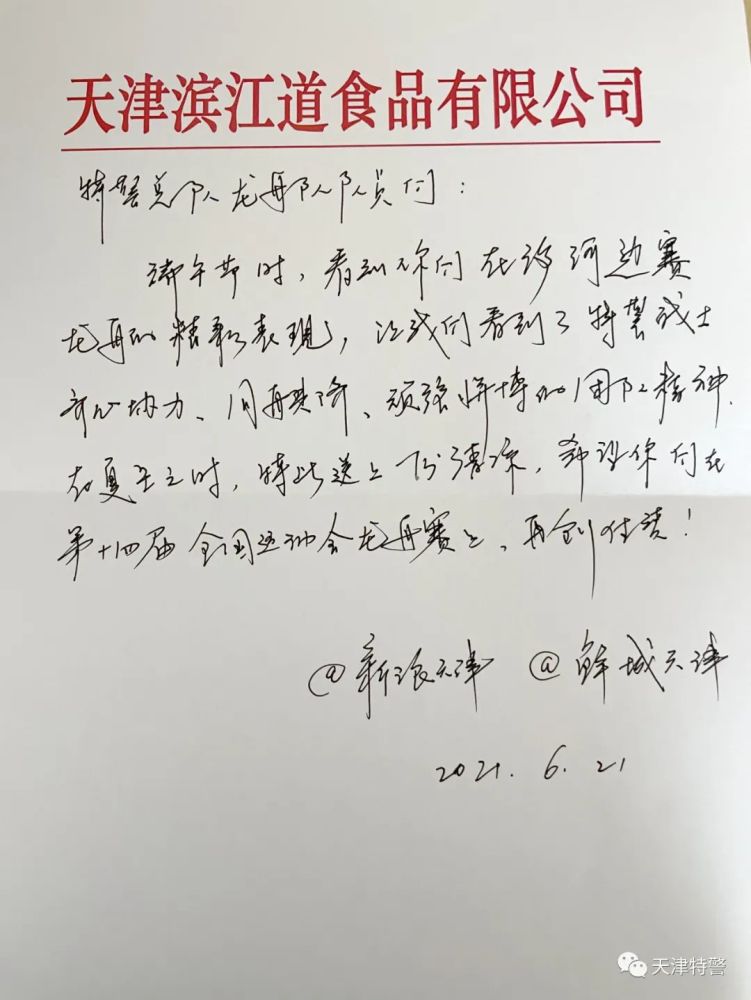 天津滨江道食品有限公司
特警总队龙舟队队员们：
端午节时，看到你们在海河边赛
龙舟的精彩表现，让我们看到了特警战士
齐心协力、同舟共济、顽强拼搏的团队精神.
在夏至之时，特此送上一份清凉，希望你们在
第十四届全国运动会龙舟赛上，再创佳绩！
@新浪天津 @鲜城天津
2021.6.21
天津特警